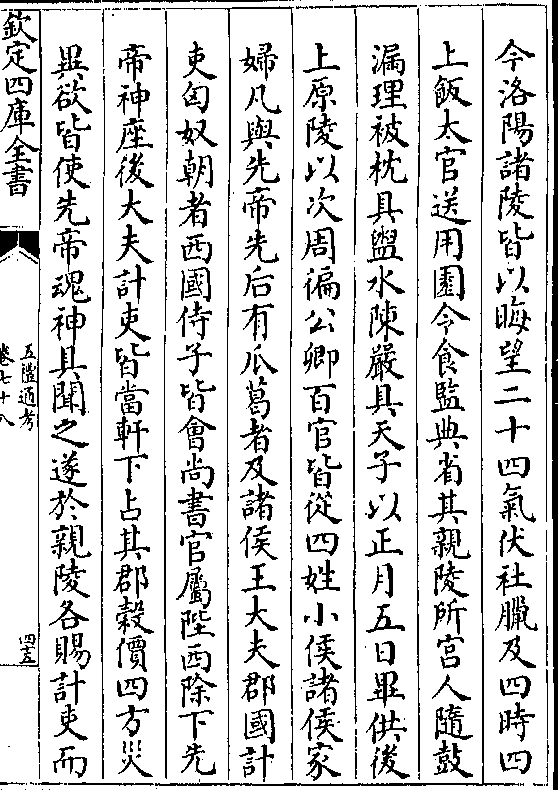 今洛陽諸陵皆以晦望二十四氣伏社臘及四時四
上飯太官送用園令食監典省其親陵所宮人隨鼓
漏理被枕具盥水陳嚴具天子以正月五日畢供後
上原陵以次周徧公卿百官皆從四姓小侯諸侯家
婦凡與先帝先后有瓜葛者及諸侯王大夫郡國計
吏匈奴朝者西國侍子皆會尚書官屬陛西除下先
帝神座後大夫計吏皆當軒下占其郡穀價四方災
異欲皆使先帝魂神具聞之遂於親陵各賜計吏而
欽定四庫全書
五禮通考
卷七十八
四十五